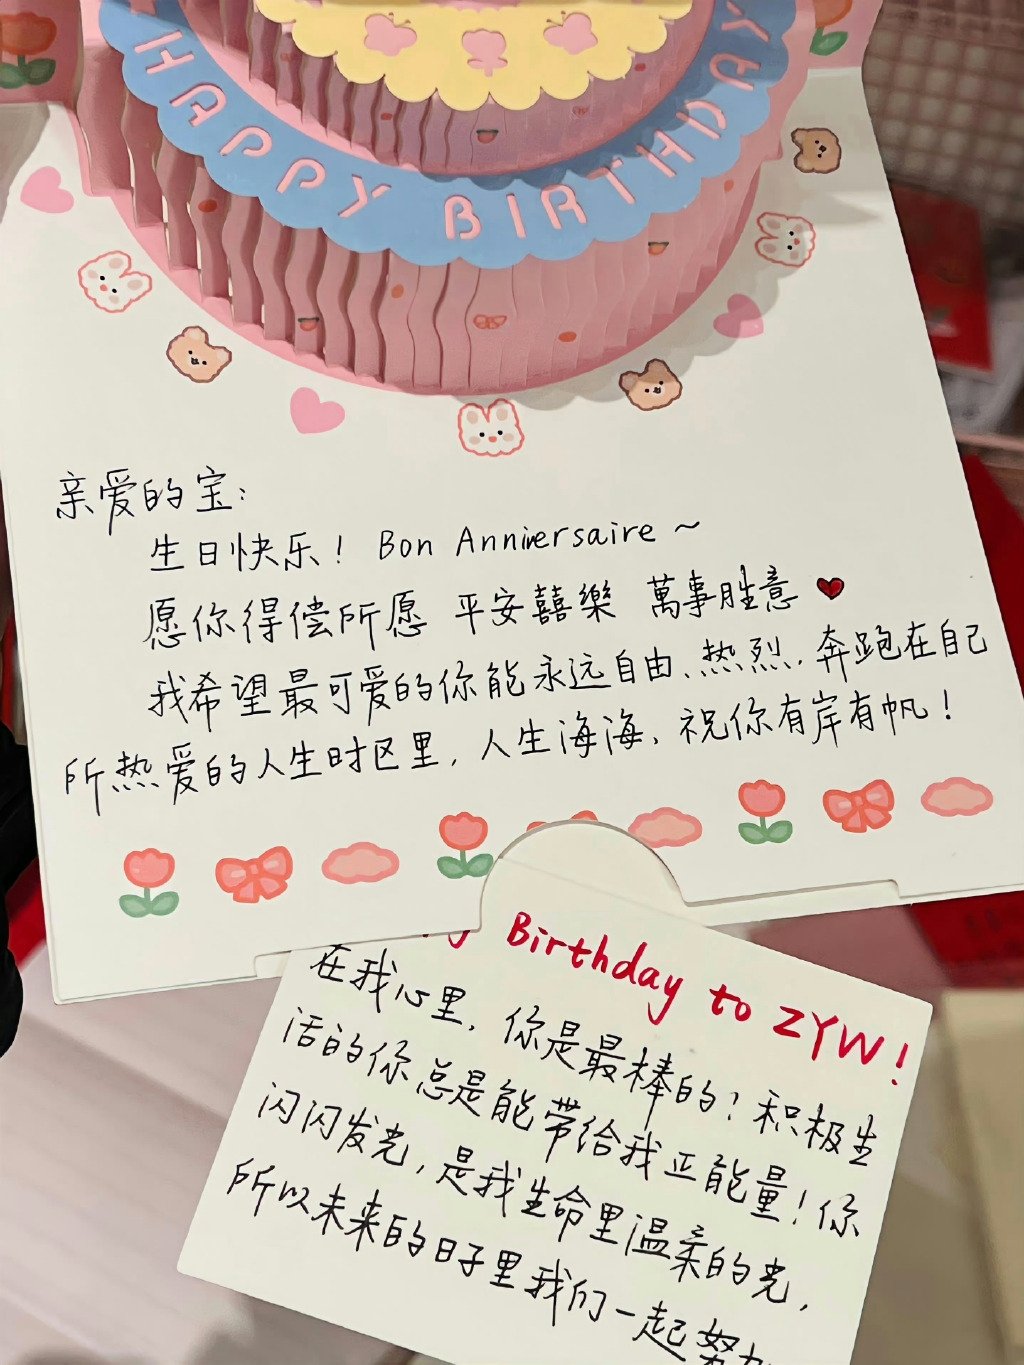 HAPPY BIRTHDAY
亲爱的宝:
生日快乐! Bon Anniversaire ~
愿你得偿所愿 平安囍樂 萬事胜意
我希望最可爱的你能永远自由、热烈,奔跑在自己
所热爱的人生时区里,人生海海,祝你有岸有帆!
Birthday to ZYW!
在我心里,你是最棒的!积极生
活的你总是能带给我正能量!你
闪闪发光,是我生命里温柔的光,
所以未来的日子里我们一起努